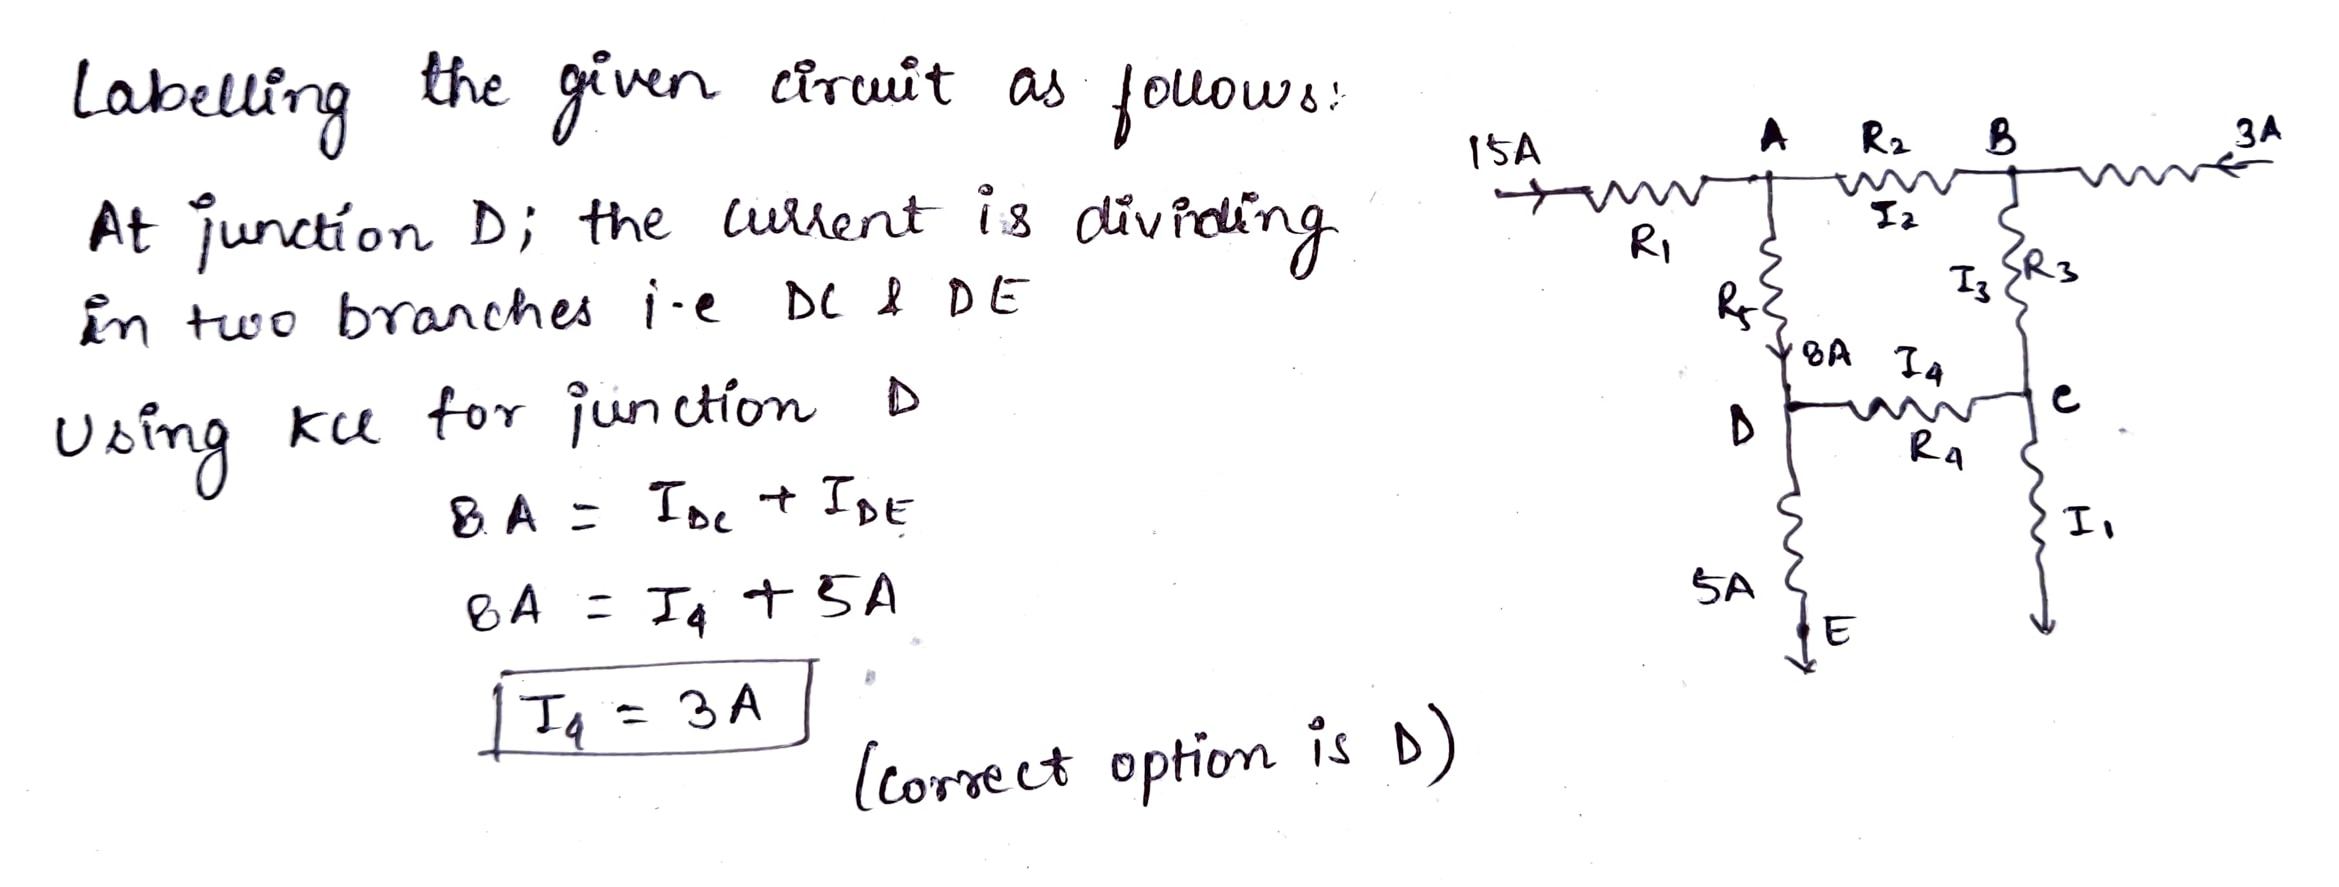 Labelling the given circuit as follows:
At junction D; the current is dividing
in two branches i.e DC & DE
Using KCL for junction D
8A = IDC + IDE
8A = I4 + 5A
I4 = 3A
(correct option is D)
15A
A
R2
B
3A
R1
I2
I3
R3
R5
8A
I4
D
C
R4
I1
5A
E